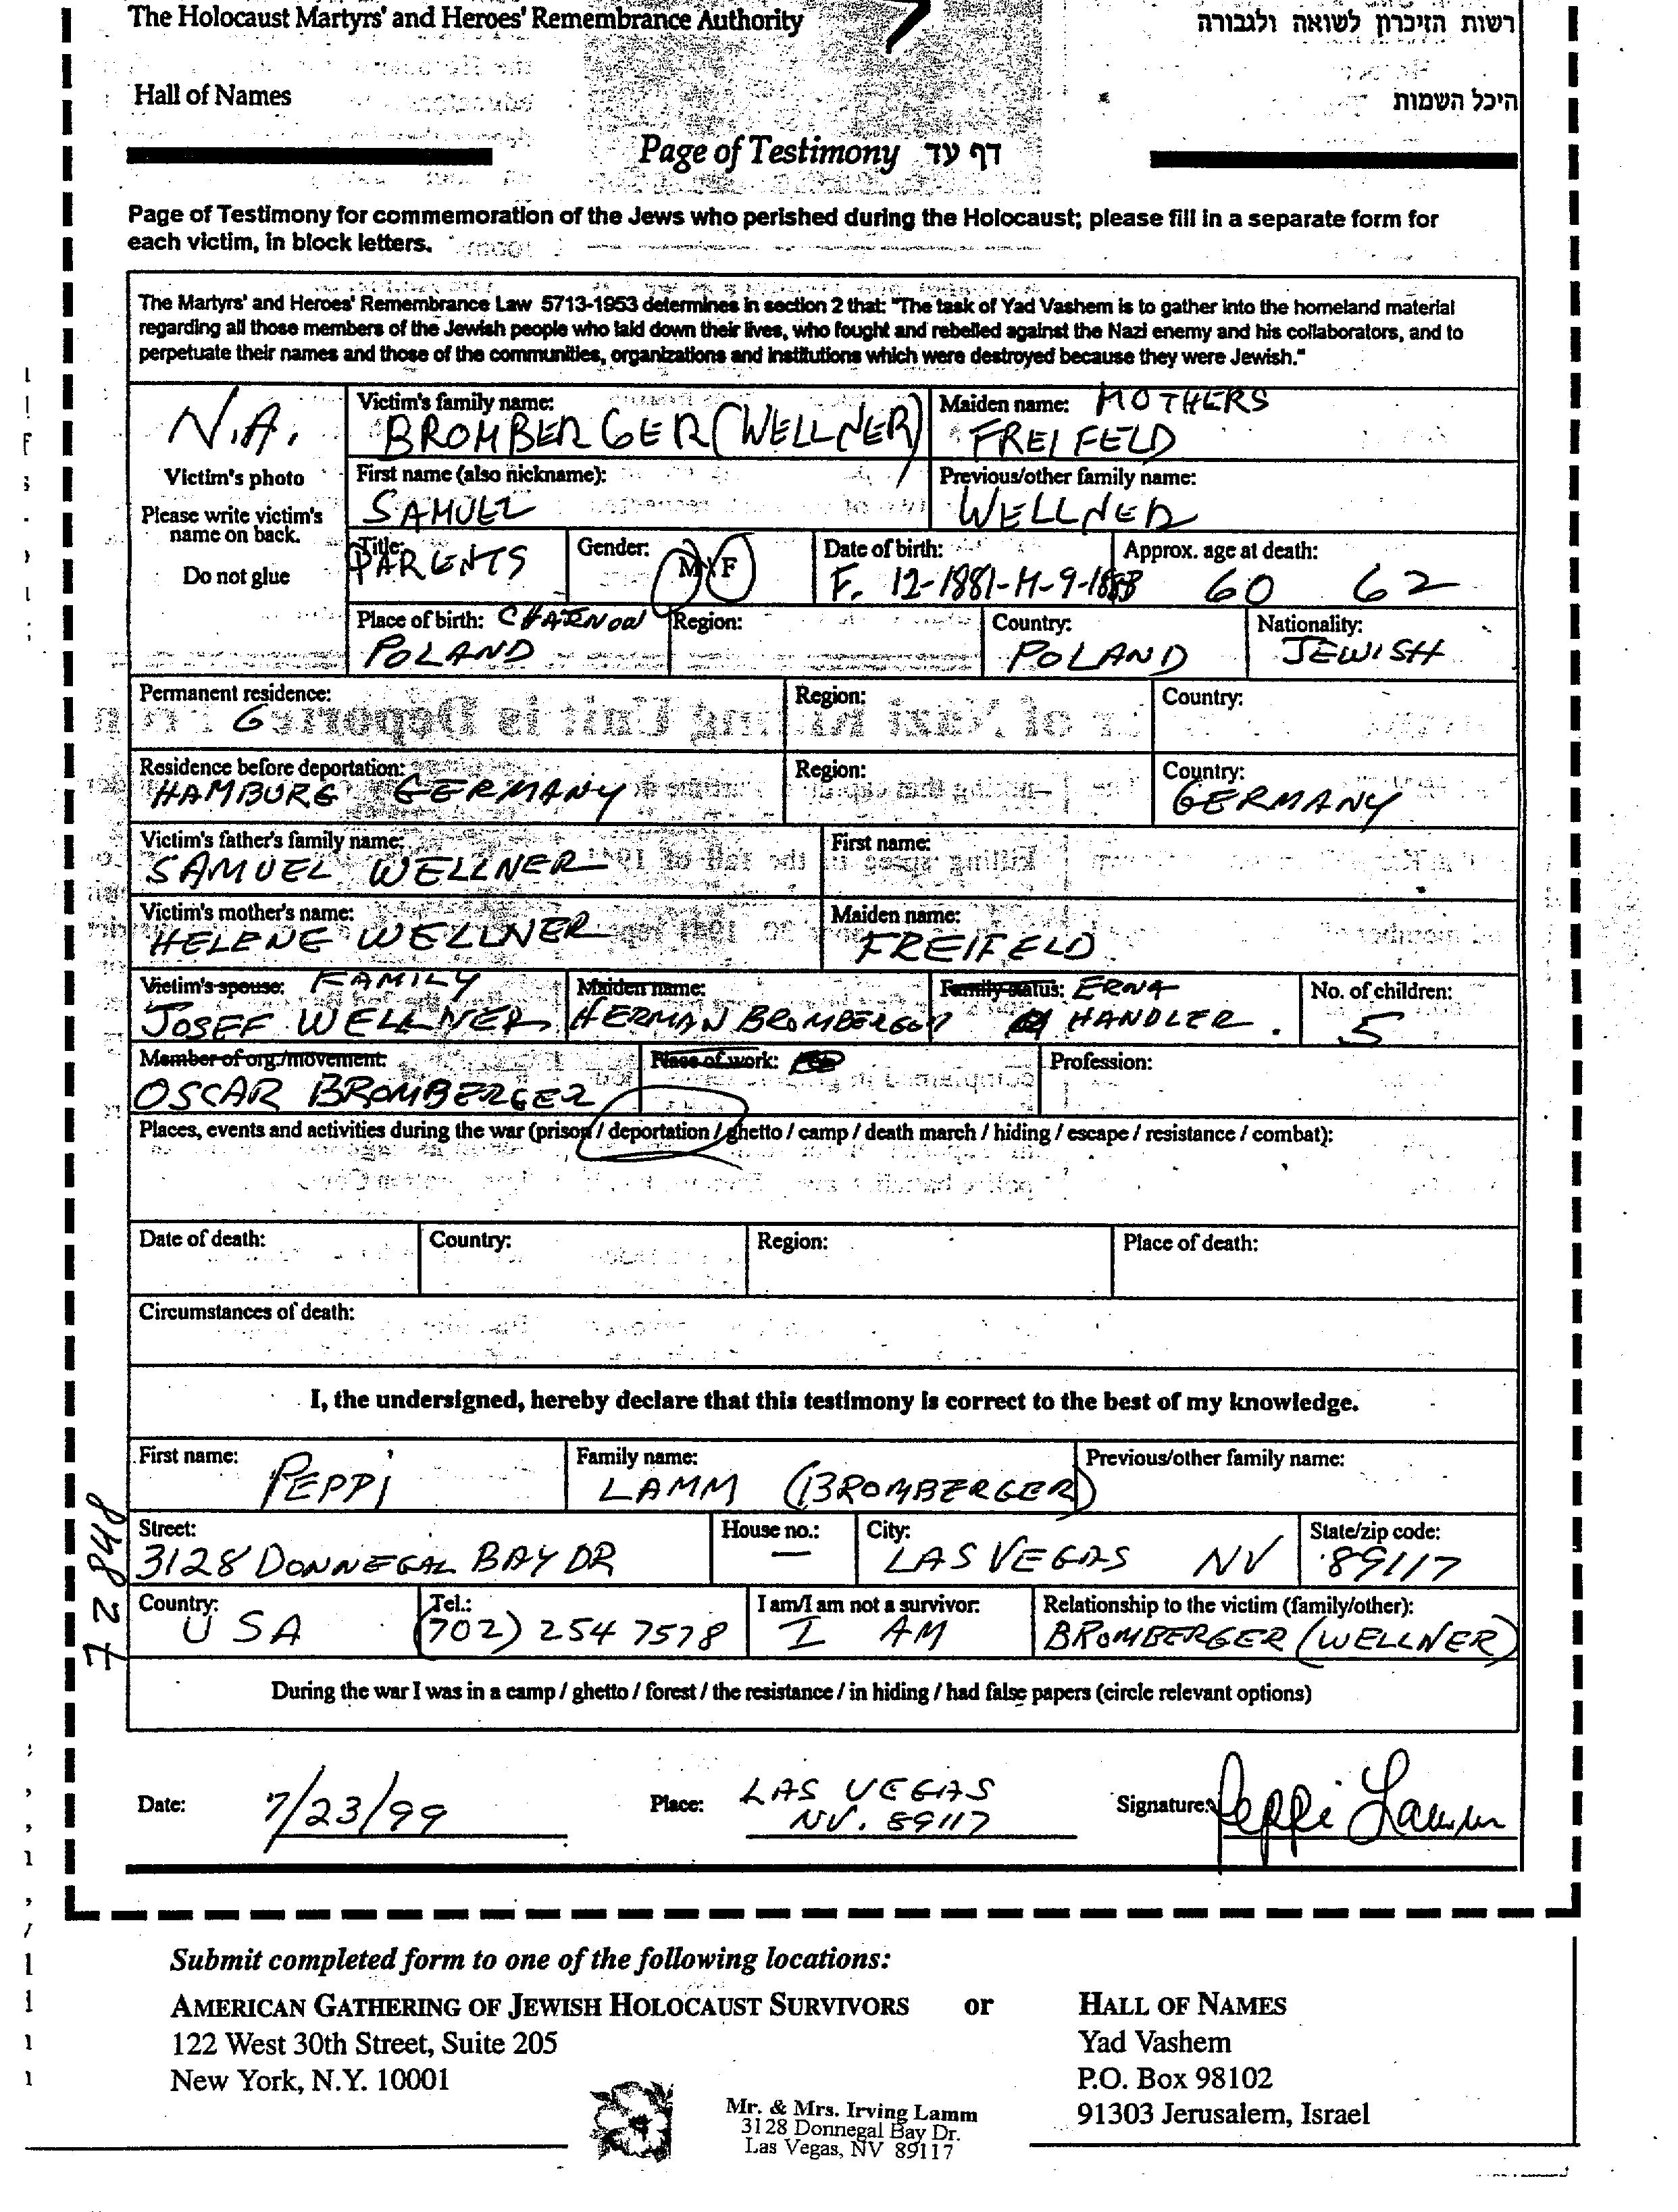 The Holocaust Martyrs' and Heroes' Remembrance Authority
רשות הזיכרון לשואה ולגבורה
Hall of Names
היכל השמות
Page of Testimony דף עד
Page of Testimony for commemoration of the Jews who perished during the Holocaust; please fill in a separate form for
each victim, in block letters.
The Martyrs' and Heroes' Remembrance Law 5713-1953 determines in section 2 that: "The task of Yad Vashem is to gather into the homeland material
regarding all those members of the Jewish people who laid down their lives, who fought and rebelled against the Nazi enemy and his collaborators, and to
perpetuate their names and those of the communities, organizations and institutions which were destroyed because they were Jewish."
N.A.
Victim's photo
Please write victim's
name on back.
Do not glue
Victim's family name:
BROMBERGER (WELLNER)
Maiden name: MOTHERS
FREIFELD
First name (also nickname):
SAMUEL
Previous/other family name:
WELLNER
Title:
PARENTS
Gender: M / F
Date of birth:
F. 12-1881-M-9-1883
Approx. age at death:
60 62
Place of birth: CHARNOW
POLAND
Region:
Country:
POLAND
Nationality:
JEWISH
Permanent residence:
G
Region:
Country:
Residence before deportation:
HAMBURG GERMANY
Region:
Country:
GERMANY
Victim's father's family name:
SAMUEL WELLNER
First name:
Victim's mother's name:
HELENE WELLNER
Maiden name:
FREIFELD
Victim's spouse: FAMILY
JOSEF WELLNER
Maiden name:
HERMAN BROMBERGER
Family status: ERNA
HANDLER.
No. of children:
5
Member of org./movement:
OSCAR BROMBERGER
Place of work:
Profession:
Places, events and activities during the war (prison / deportation / ghetto / camp / death march / hiding / escape / resistance / combat):
Date of death:
Country:
Region:
Place of death:
Circumstances of death:
I, the undersigned, hereby declare that this testimony is correct to the best of my knowledge.
First name:
PEPPI
Family name:
LAMM (BROMBERGER)
Previous/other family name:
Street:
3128 DONNEGAL BAY DR
House no.:
—
City:
LAS VEGAS NV
State/zip code:
89117
Country:
USA
Tel.:
(702) 254 7578
I am/I am not a survivor:
I AM
Relationship to the victim (family/other):
BROMBERGER (WELLNER)
72848
During the war I was in a camp / ghetto / forest / the resistance / in hiding / had false papers (circle relevant options)
Date: 7/23/99
Place: LAS VEGAS
NV. 89117
Signature: Peppi Lamm
Submit completed form to one of the following locations:
AMERICAN GATHERING OF JEWISH HOLOCAUST SURVIVORS or
122 West 30th Street, Suite 205
New York, N.Y. 10001
HALL OF NAMES
Yad Vashem
P.O. Box 98102
91303 Jerusalem, Israel
Mr. & Mrs. Irving Lamm
3128 Donnegal Bay Dr.
Las Vegas, NV 89117